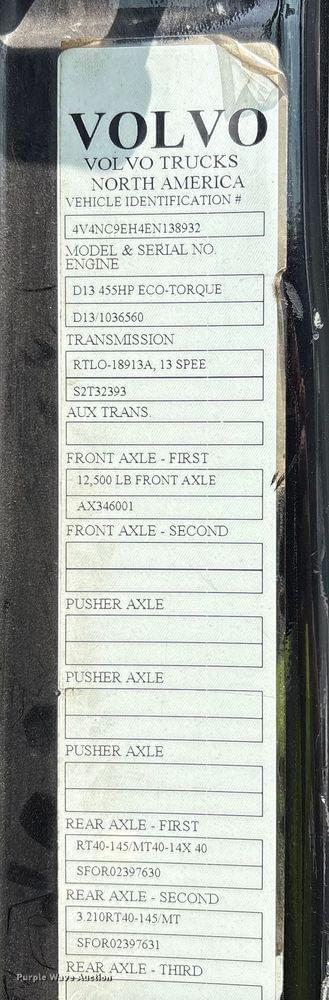 VOLVO
VOLVO TRUCKS
NORTH AMERICA
VEHICLE IDENTIFICATION #
4V4NC9EH4EN138932
MODEL & SERIAL NO.
ENGINE
D13 455HP ECO-TORQUE
D13/1036560
TRANSMISSION
RTLO-18913A, 13 SPEE
S2T32393
AUX TRANS.
FRONT AXLE - FIRST
12,500 LB FRONT AXLE
AX346001
FRONT AXLE - SECOND
PUSHER AXLE
PUSHER AXLE
PUSHER AXLE
REAR AXLE - FIRST
RT40-145/MT40-14X 40
SFOR02397630
REAR AXLE - SECOND
3.210RT40-145/MT
SFOR02397631
REAR AXLE - THIRD
Purple Wave Auction